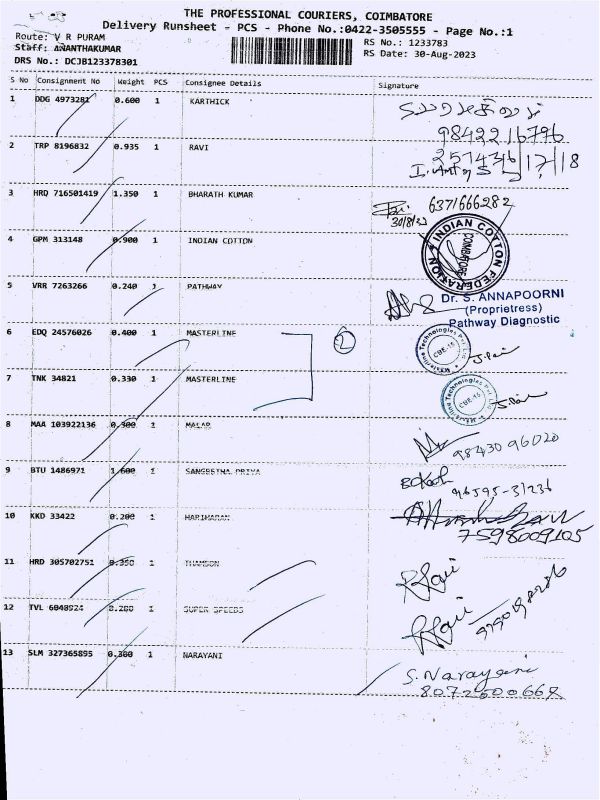 THE PROFESSIONAL COURIERS, COIMBATORE
Delivery Runsheet - PCS - Phone No.:0422-3505555 - Page No.:1
Route: V R PURAM
RS No.: 1233783
Staff: ANANTHAKUMAR
RS Date: 30-Aug-2023
DRS No.: DCJB123378301
S No Consignment No Weight PCS Consignee Details Signature
1 DDG 4973281 0.600 1 KARTHICK
9842216796
2 TRP 8196832 0.935 1 RAVI
3 HRD 716501419 1.350 1 BHARATH KUMAR
6371666282
30/8/23
4 GPM 313148 0.900 1 INDIAN COTTON
INDIAN COTTON FEDERATION
COIMBATORE
5 VRR 7263266 0.240 1 PATHWAY
Dr. S. ANNAPOORNI
(Proprietress)
Pathway Diagnostic
6 EDQ 24576026 0.400 1 MASTERLINE
2
Masterline Technologies Pvt Ltd
CBE-15
7 TNK 34821 0.330 1 MASTERLINE
Masterline Technologies Pvt Ltd
CBE-15
8 MAA 103922136 0.300 1 MALAR
98430 96020
9 BTU 1486971 1.600 1 SANGEETHA PRIYA
96595-31236
10 KKD 33422 0.200 1 HARIHARAN
7598009105
11 HRD 305702751 0.350 1 THAMSON
12 TVL 6048924 0.280 1 SUPER SPEEDS
13 SLM 327365895 0.300 1 NARAYANI
S. Narayani
8072500668